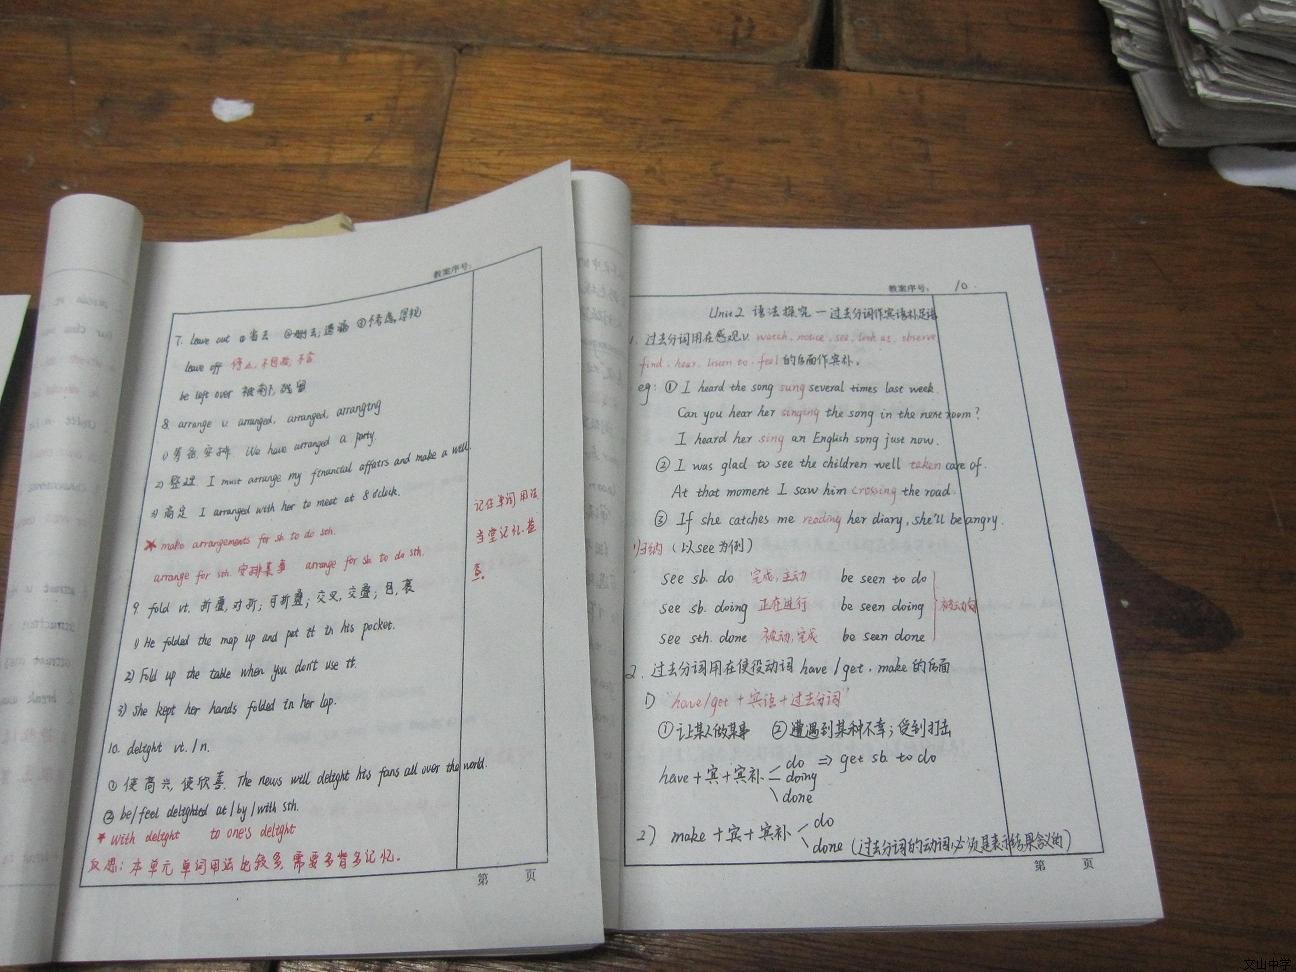 教案序号:
7. leave out ①省去 ②删去;遗漏 ③不考虑,忽视
leave off 停止,不自做,不
be left over 被剩下,残留
8. arrange v. arranged, arranged, arranging
1) 筹备,安排. We have arranged a party.
2) 整理. I must arrange my financial affairs and make a will.
3) 商定 I arranged with her to meet at 8 o'clock.
* make arrangements for sb. to do sth.
arrange for sth. 安排某事 arrange for sb. to do sth.
记住单词用法
当堂记忆,检
查.
9. fold vt. 折叠,对折;可折叠;交叉,交叠;包,裹
1) He folded the map up and put it in his pocket.
2) Fold up the table when you don't use it.
3) She kept her hands folded in her lap.
10. delight vt./n.
① 使高兴,使欣喜. The news will delight his fans all over the world.
② be/feel delighted at/by/with sth.
* with delight to one's delight
反思:本单元单词用法比较多,需要多背多记忆.
第 页
教案序号: 10
Unit 2 语法探究—过去分词作宾语补足语
1. 过去分词用在感观v. watch, notice, see, look at, observe
find, hear, listen to, feel 的后面作宾补.
eg: ① I heard the song sung several times last week.
Can you hear her singing the song in the next room?
I heard her sing an English song just now.
② I was glad to see the children well taken care of.
At that moment I saw him crossing the road.
③ If she catches me reading her diary, she'll be angry.
归纳 (以see为例)
see sb. do 完成,主动 be seen to do
see sb. doing 正在进行 be seen doing 被动句
see sth. done 被动,完成 be seen done
2. 过去分词用在使役动词 have/get, make 的后面
1) "have/get + 宾语 + 过去分词"
① 让某人做某事 ② 遭遇到某种不幸;受到打击
have + 宾 + 宾补 do ⇒ get sb. to do
doing
done
2) make + 宾 + 宾补 do
done (过去分词的动词,必须是表示结果含义的)
第 页
文山中学